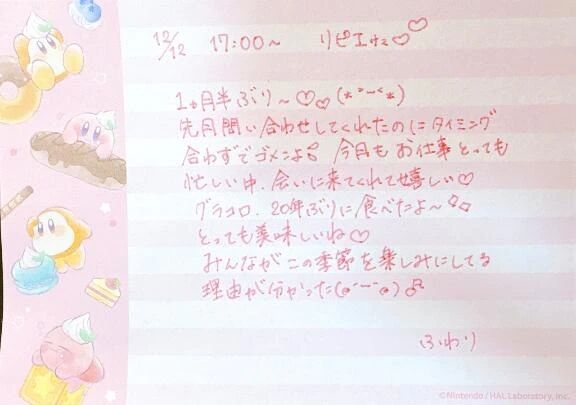 12/12 17:00〜 リピエッセ♡♡
1ヵ月半ぶり〜♡♡(*˘︶˘*)
先月問い合わせしてくれたのにタイミング
合わずでゴメンよ 今月もお仕事とっても
忙しい中、会いに来てくれて嬉しい♡
グラコロ、20年ぶりに食べたよ〜
とっても美味しいね♡
みんながこの季節を楽しみにしてる
理由が分かった(๑˘︶˘๑)♬
ふわり
©Nintendo / HAL Laboratory, Inc.